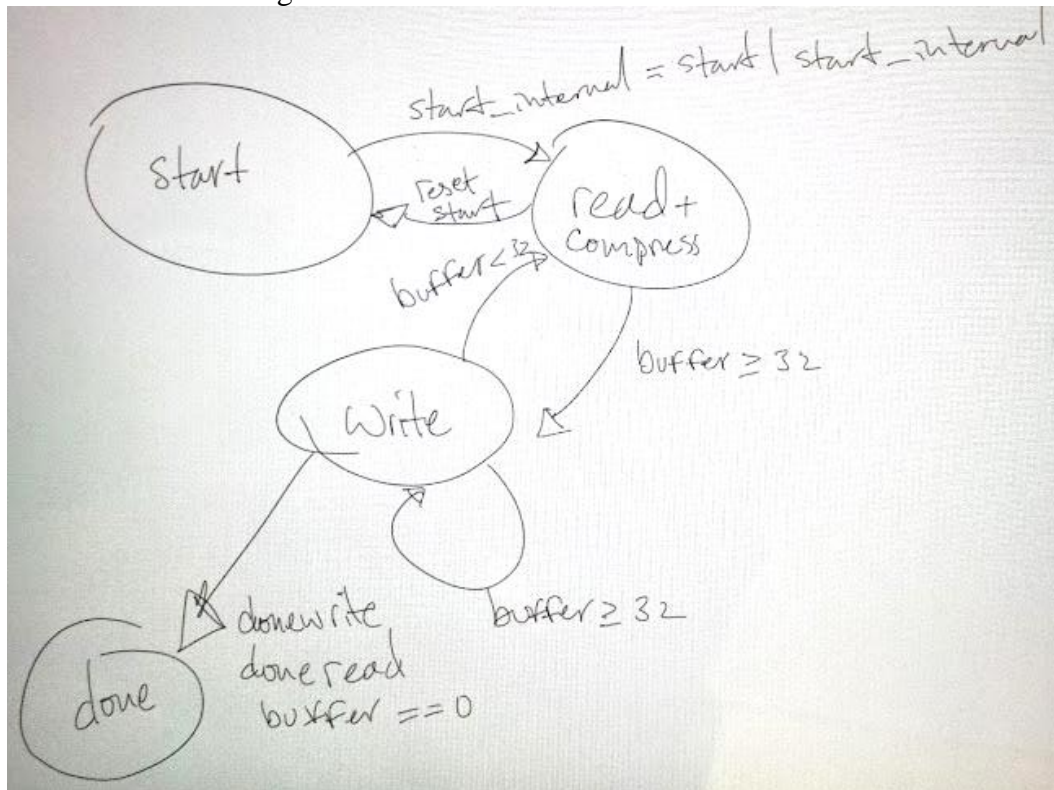 start_internal = start | start_internal
start
reset
start
read +
compress
buffer < 32
buffer ≥ 32
write
buffer ≥ 32
donewrite
doneread
buffer == 0
done